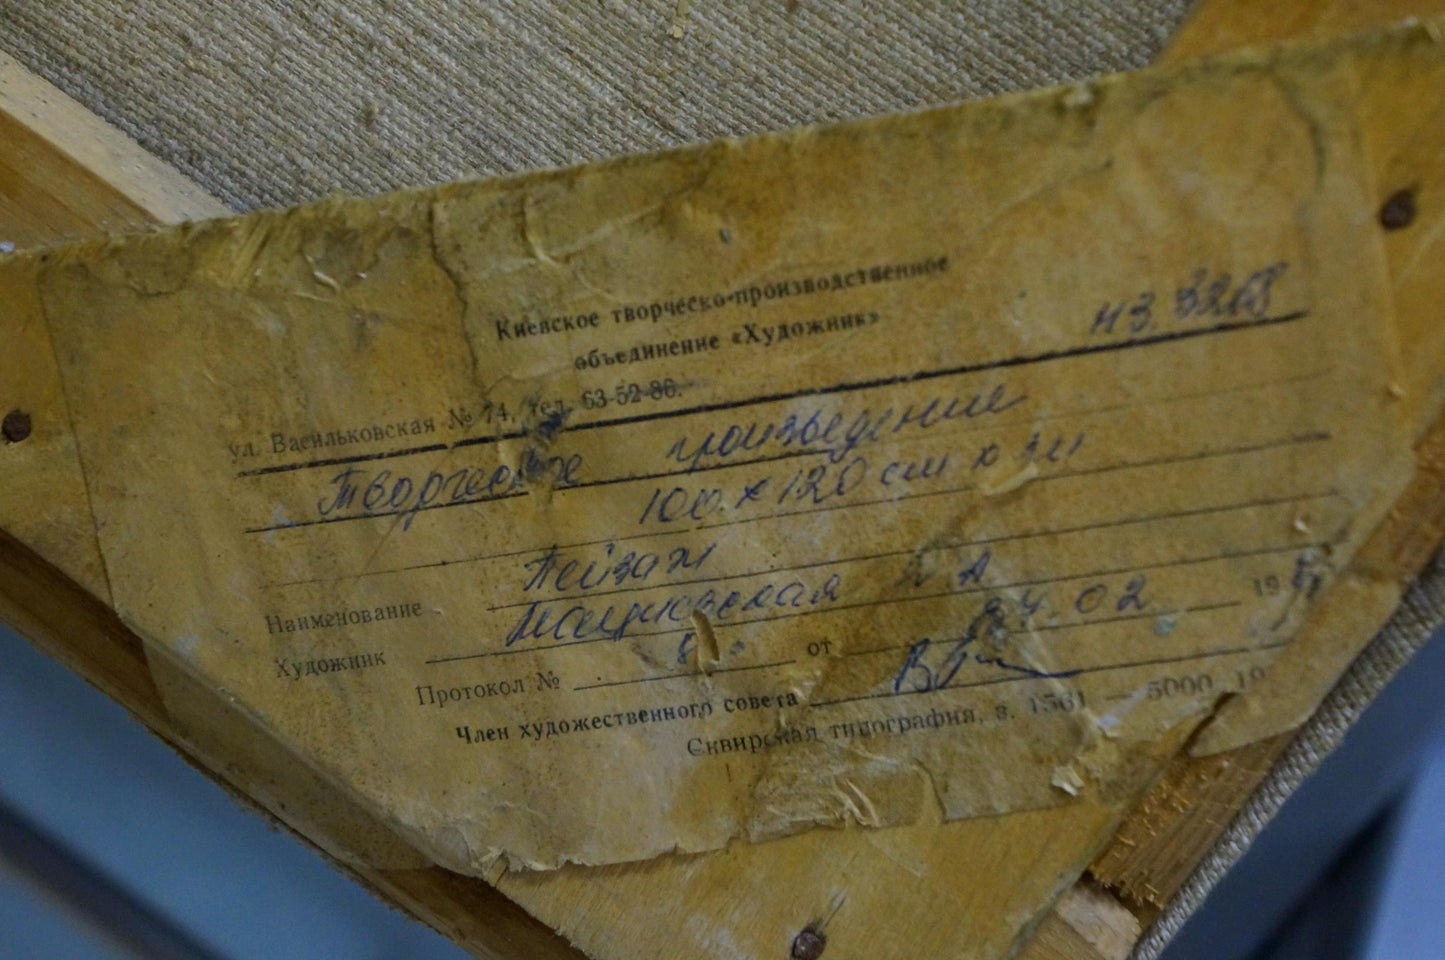 Киевское творческо-производственное
объединение «Художник»
ул. Васильковская № 74, тел. 63-52-86.
нз. 3268
Творческое произведение
100 х 120 см х м
Наименование Пейзаж
Художник
Протокол № 8 от 24.02 198
Член художественного совета
Сквирская типография, з. 1561 — 5000 19